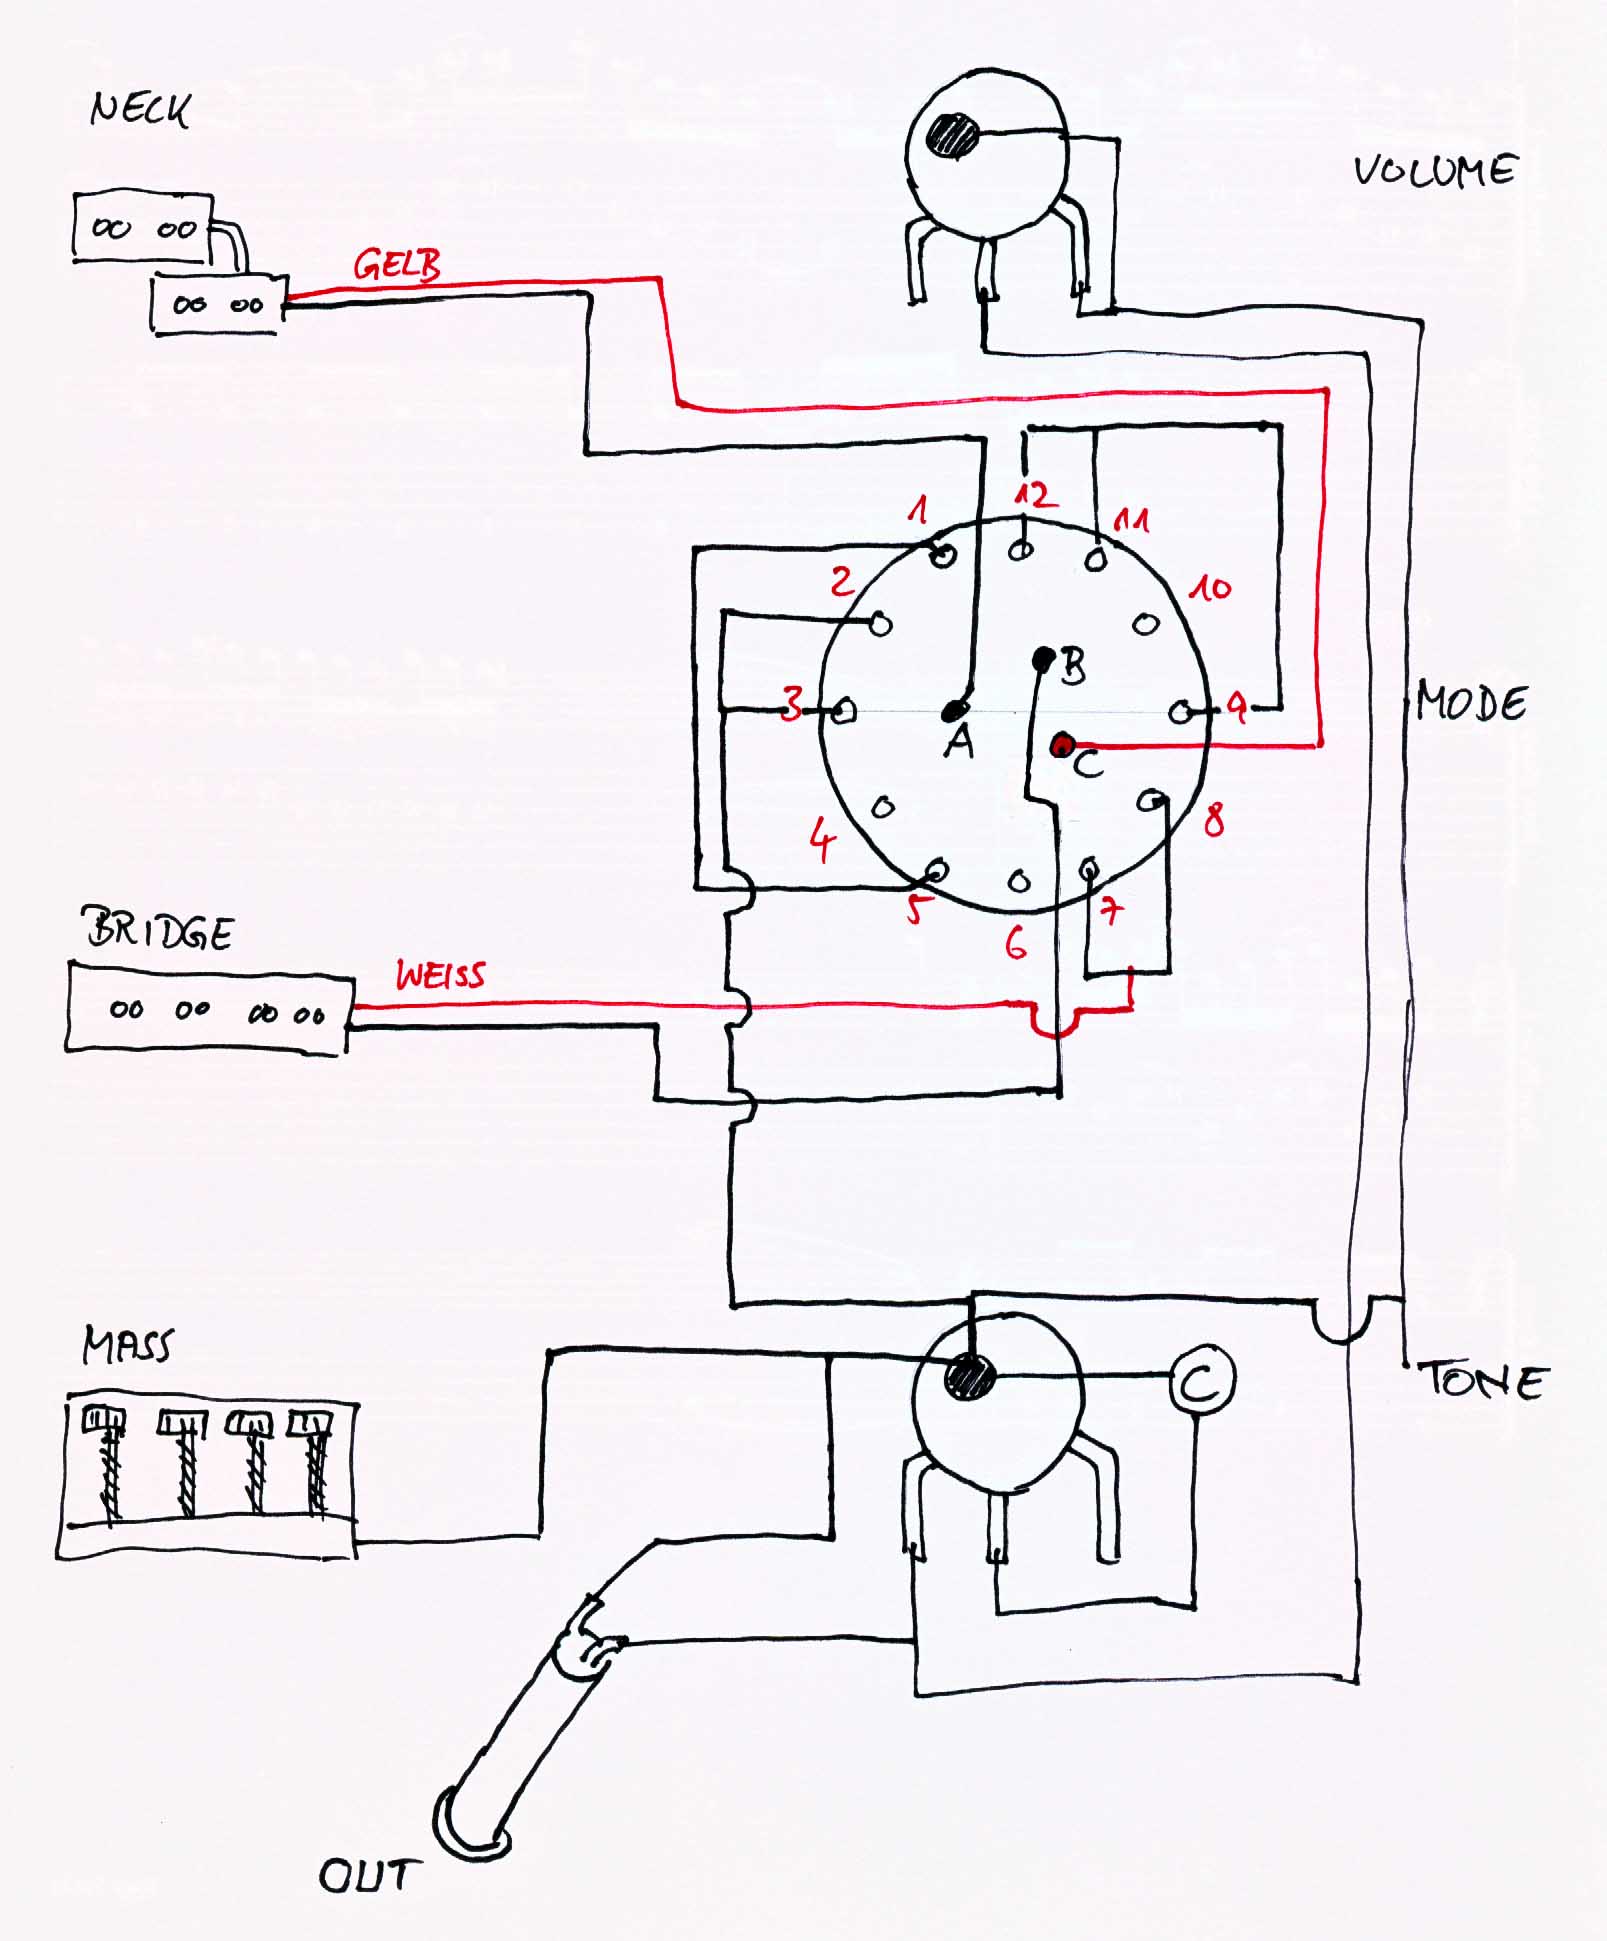 NECK
VOLUME
GELB
1
12
11
2
10
B
3
9
MODE
A
C
4
8
5
7
6
BRIDGE
WEISS
MASS
C
TONE
OUT